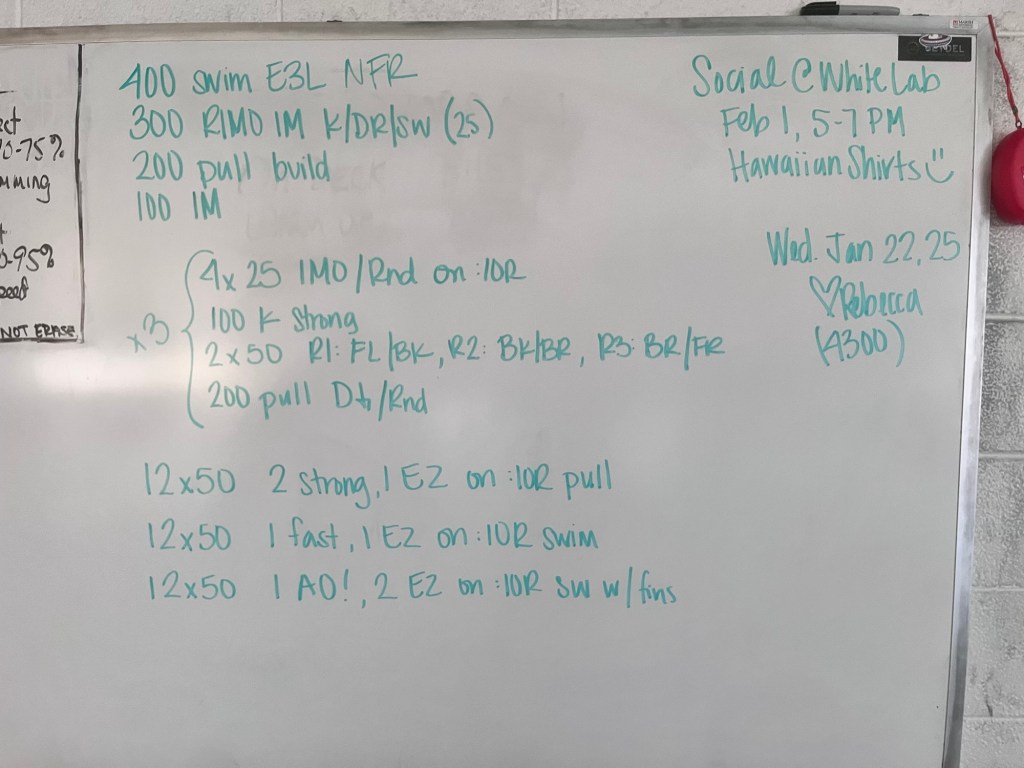 400 swim E3L NFR
300 RIMO IM K/DR/SW (25)
200 pull build
100 IM
x3
4x25 IMO/Rnd on :10R
100 K Strong
2x50 R1: FL/BK, R2: BK/BR, R3: BR/FR
200 pull D↓/Rnd
12x50 2 strong, 1 EZ on :10R pull
12x50 1 fast, 1 EZ on :10R swim
12x50 1 AO!, 2 EZ on :10R SW w/fins
Social @ White Lab
Feb 1, 5-7 PM
Hawaiian Shirts
Wed. Jan 22, 25
♡Rebecca
(4300)
NOT ERASE